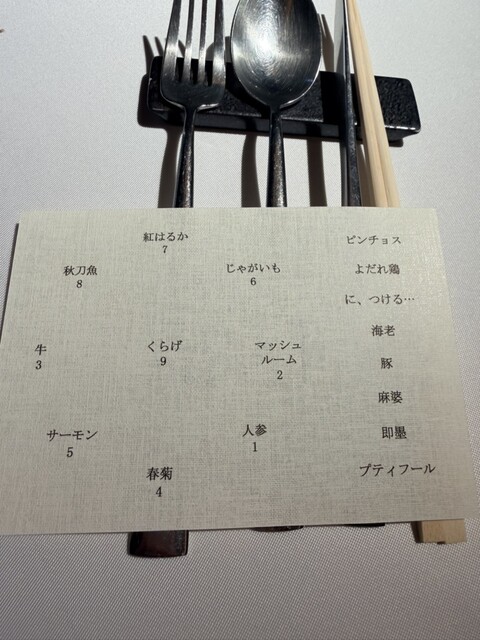 紅はるか
7
秋刀魚
8
じゃがいも
6
牛
3
くらげ
9
マッシュ
ルーム
2
サーモン
5
人参
1
春菊
4
ピンチョス
よだれ鶏
に、つける…
海老
豚
麻婆
即墨
プティフール